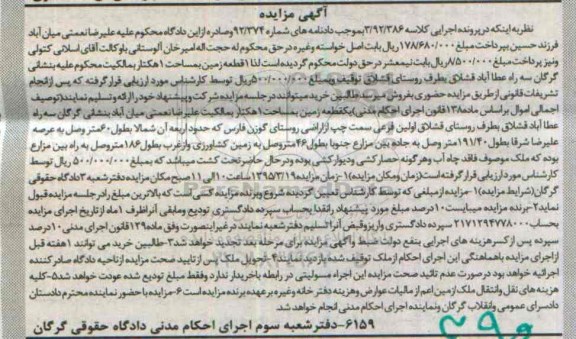 آگهی مزایده
نظر به اینکه در پرونده اجرایی کلاسه ۳/۹۲/۳۸۶ بموجب دادنامه های شماره ۹۲/۳۷۴ وصادره از این دادگاه محکوم علیه علیرضا نعمتی میان آباد
فرزند حسین بپرداخت مبلغ ۱۷۸/۶۸۰/۰۰۰ ریال بابت اصل خواسته وغیره در حق محکوم له حجت اله امیرخان آلوستانی باوکالت آقای اسلامی کتولی
ونیز پرداخت مبلغ ۸/۵۰۰/۰۰۰ ریال بابت نیم عشر در حق دولت محکوم گردیده است لذا ۱ قطعه زمین بمساحت ۱ هکتار بمالکیت محکوم علیه بنشانی
گرگان سه راه عطا آباد قشلاق بطرف روستای قشلاق توقیف وبمبلغ ۵۰۰/۰۰۰/۰۰۰ ریال توسط کارشناس مورد ارزیابی قرار گرفته که پس از انجام
تشریفات قانونی از طریق مزایده حضوری بفروش میرسد طالبین خرید میتوانند در جلسه مزایده شرکت وپیشنهاد خود را ارائه وتسلیم نمایند(توصیف
اجمالی اموال براساس ماده ۱۳۸ قانون اجرای احکام مدنی یکقطعه زمین بمساحت ۱ هکتار بمالکیت علیرضا نعمتی میان آباد بنشانی گرگان سه راه
عطا آباد قشلاق بطرف روستای قشلاق اولین فرعی سمت چپ از اراضی روستای گوزن فارس که حدود اربعه آن شمالا بطول ۶۰متر وصل به عرصه
علیرضا شرقا بطول ۱۹۱/۴۰ متر وصل به جاده بین مزارع جنوبا بطول ۴۶ متر وصل به زمین کشاورزی وازغرب بطول ۱۸۶ متروصل به راه بین مزارع
بوده که ملک موصوف فاقد چاه آب وهرگونه حصارکشی ودیوار کشی بوده ودرحال حاضر تحت کشت میباشد که بمبلغ ۵۰۰/۰۰۰/۰۰۰ ریال توسط
کارشناس مورد ارزیابی قرار گرفته است(زمان ومکان مزایده)۱-زمان مزایده ۱۳۹۵/۳/۱۹ساعت ۱۰ الی ۱۱صبح مکان مزایده دفتر شعبه ۳دادگاه حقوقی
گرگان(شرایط مزایده)۱-مزایده از مبلغی که توسط کارشناس تعیین گردیده شروع وبرنده مزایده کسی است که بالاترین مبلغ را در جلسه مزایده قبول
نماید ۲-برنده مزایده میبایست ۱۰ درصد مبلغ مورد پیشنهاد را نقدا بحساب سپرده دادگستری تودیع ومابقی آنرا ظرف ۱ماه از تاریخ اجرای مزایده
بحساب ۲۱۷۱۲۹۴۷۷۸۰۰۰ سپرده دادگستری واریز وقبض آنرا تسلیم دفتر شعبه نمایند در غیراینصورت وفق ماده ۱۲۹قانون اجرای مدنی ۱۰ درصد
سپرده پس از کسر هزینه های اجرایی بنفع دولت ضبط وآگهی مزایده برای مرحله بعد تجدید خواهد شد ۳-طالبین خرید می توانند ۱ هفته قبل
از اجرای مزایده باهماهنگی این اجرای احکام از ملک توقیف شده بازدید نمایند ۴-تحویل ملک پس از تایید صحت مزایده از ناحیه دادگاه صادرکننده
اجرائیه خواهد بود در صورت عدم تائید صحت مزایده این اجراء مسولیتی در رابطه باخریدار ندارد وفقط مبلغ تودیع شده عودت خواهد شد ۵-کلیه
هزینه های نقل وانتقال ملک از زمین اعم از مالیات عوارض وهزینه دفتر خانه وغیره بر عهده برنده مزایده است ۶-مزایده با حضور نماینده محترم دادستان
دادسرای عمومی وانقلاب گرگان ونماینده اجرای احکام مدنی انجام خواهد شد.
۶۱۵۹-دفتر شعبه سوم اجرای احکام مدنی دادگاه حقوقی گرگان